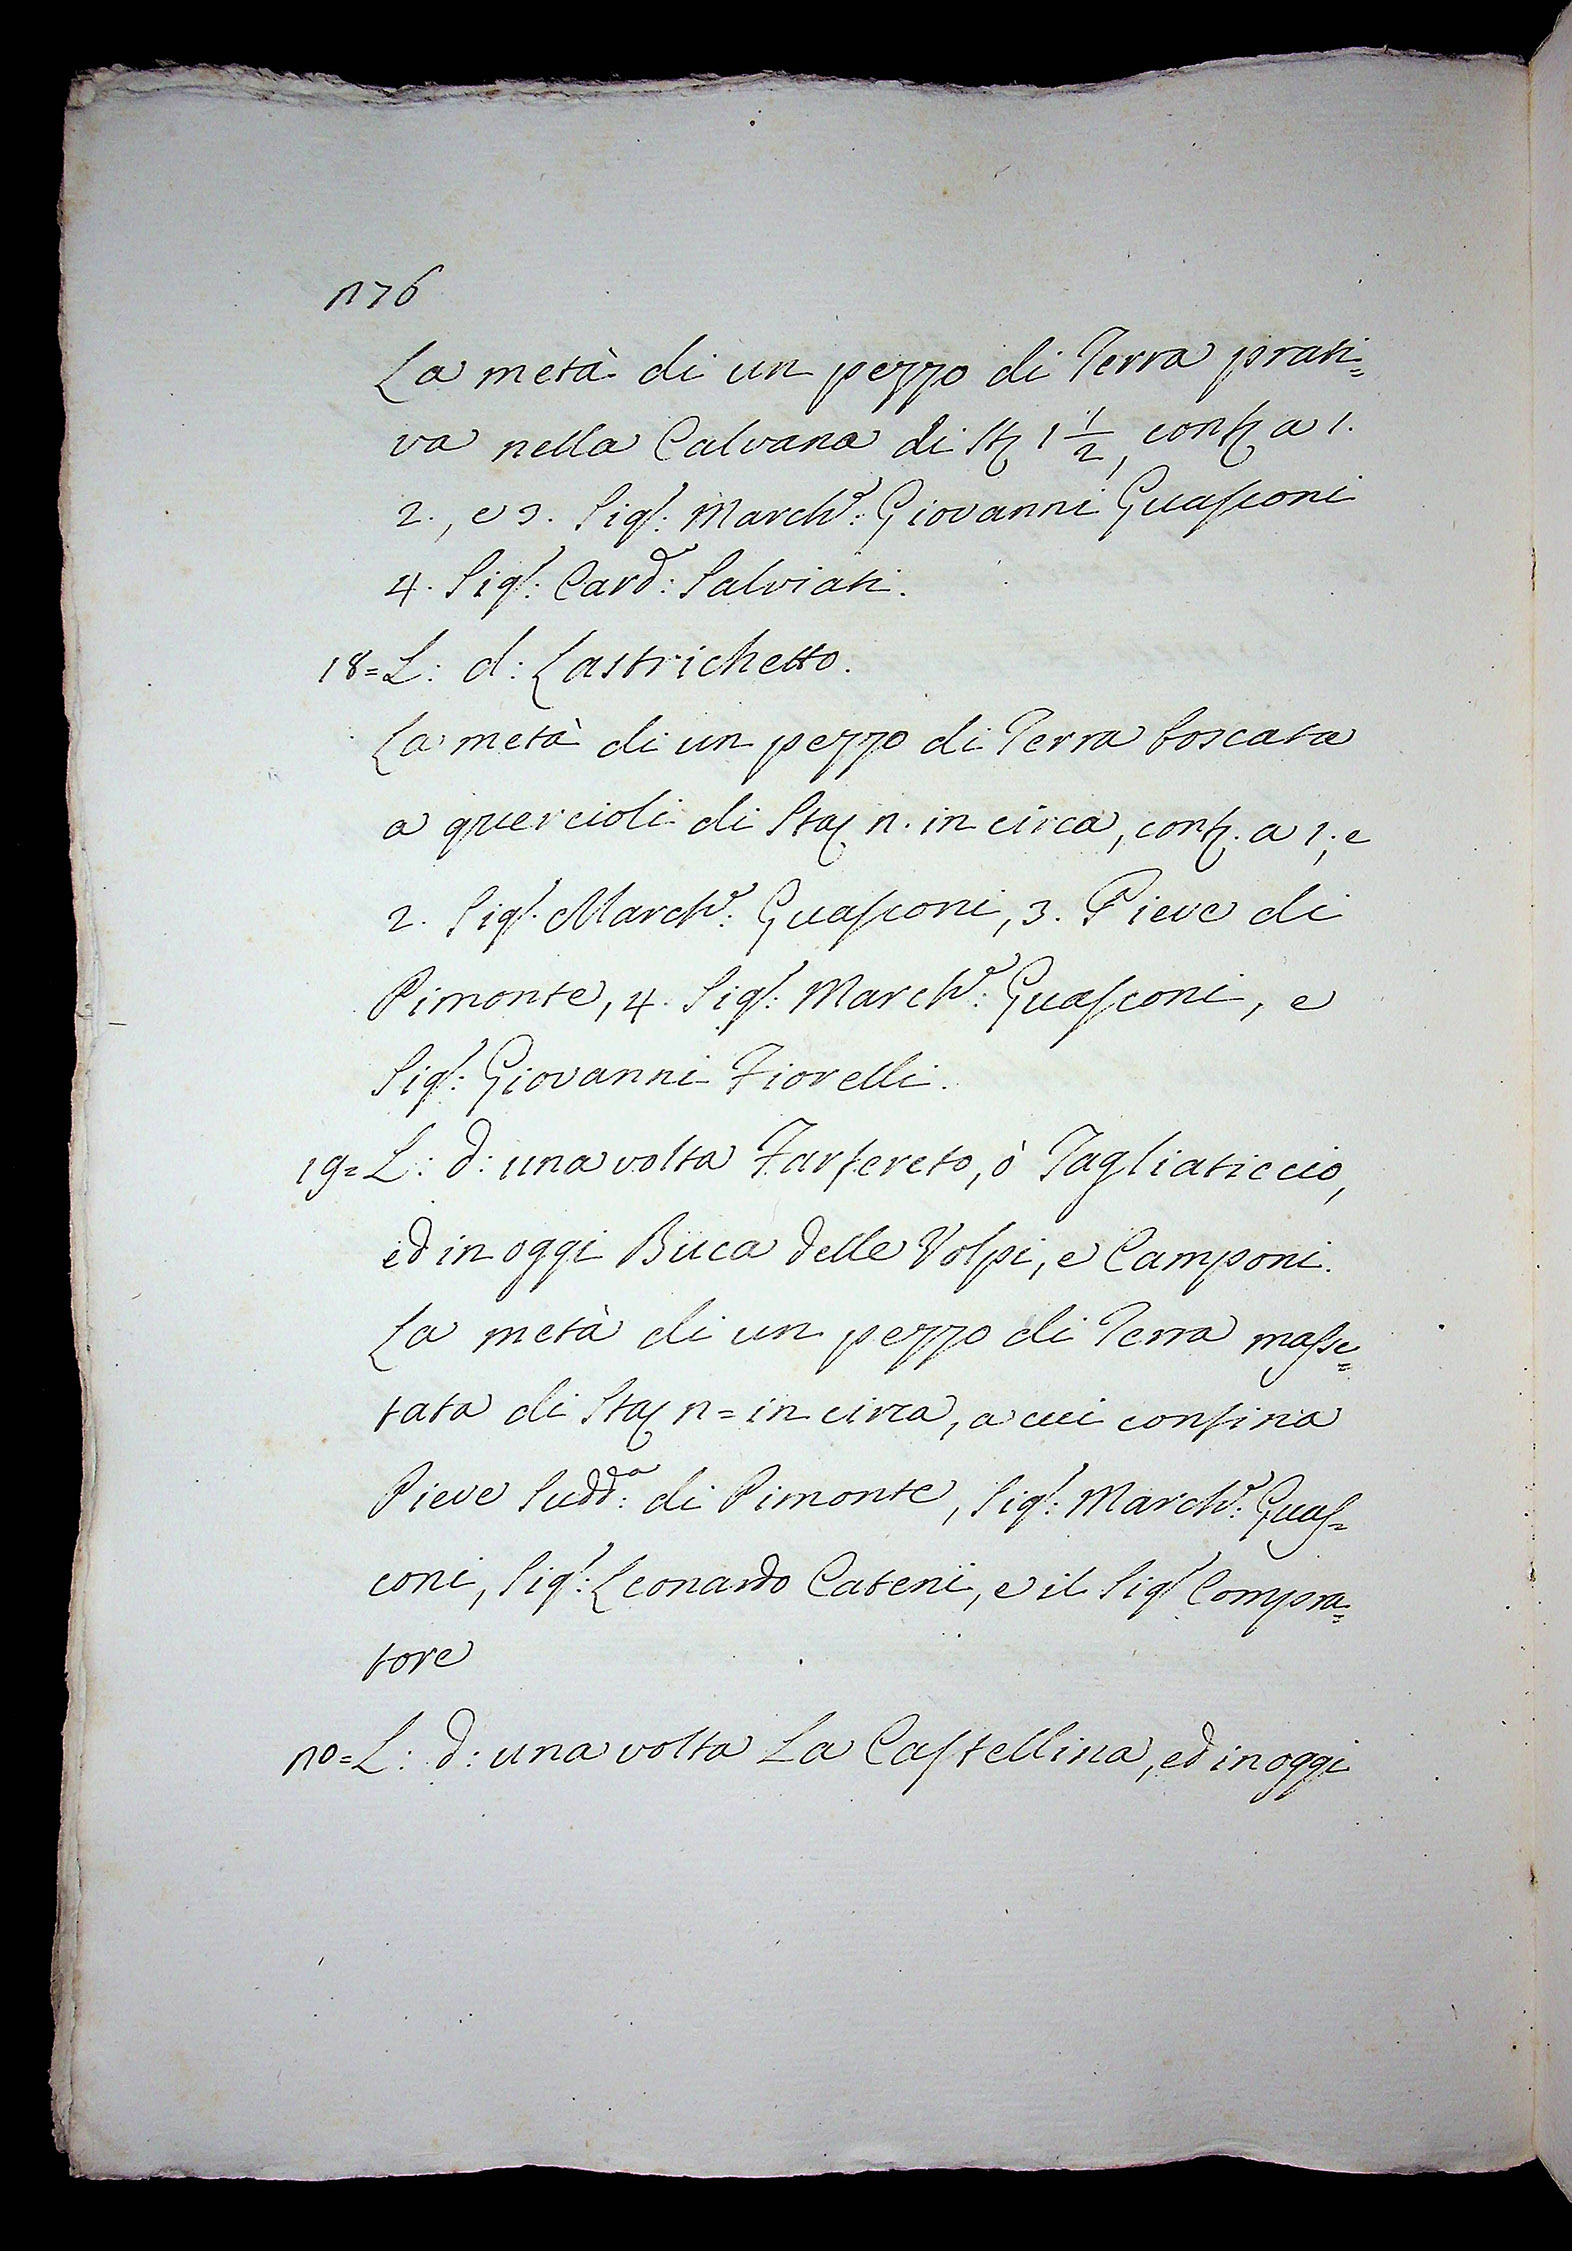 276
La metà di un pezzo di Terra prati=
va nella Calvana di St. 1 1/2, conf. a 1.
2., e 3. Sig.: March.e: Giovanni Guasconi
4. Sig.: Card: Salviati.
18= L: d: Lastrichetto.
La metà di un pezzo di Terra boscata
a quercioli di Sta. 2. in circa, conf. a 1., e
2. Sig. March.e: Guasconi, 3. Pieve di
Pimonte, 4. Sig.: March.e: Guasconi, e
Sig.: Giovanni Fiorelli.
19= L: d: una volta Farfereto, ò Tagliaticcio,
ed in oggi Buca delle Volpi, e Camponi.
La metà di un pezzo di Terra masse=
tata di Sta. 2= in circa, a cui confina
Pieve Sudd.a: di Pimonte, Sig.: March.e: Guas=
coni, Sig.: Leonardo Cateni, e il Sig. Compra=
tore
20= L: d: una volta La Castellina, ed in oggi